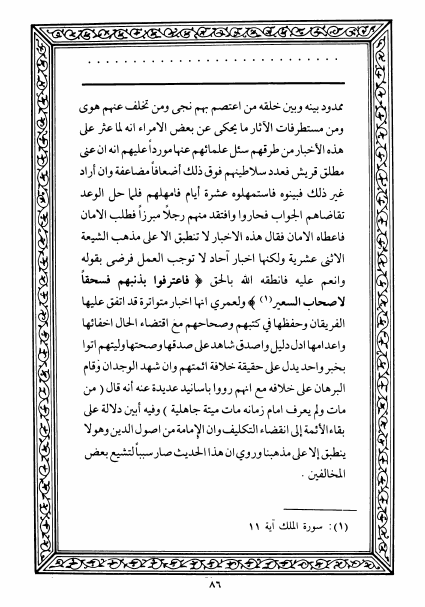 ممدود بينه وبين خلقه من اعتصم بهم نجى ومن تخلف عنهم هوى
ومن مستطرفات الآثار ما يحكى عن بعض الامراء انه لما عثر على
هذه الأخبار من طرقهم سئل علمائهم عنها مورداً عليهم انه ان عنى
مطلق قريش فعدد سلاطينهم فوق ذلك أضعافاً مضاعفة وان أراد
غير ذلك فبينوه فاستمهلوه عشرة أيام فامهلهم فلما حل الوعد
تقاضاهم الجواب فحاروا وافتقد منهم رجلاً مبرزاً فطلب الامان
فاعطاه الامان فقال هذه الاخبار لا تنطبق الا على مذهب الشيعة
الاثنى عشرية ولكنها اخبار آحاد لا توجب العمل فرضى بقوله
وانعم عليه فانطقه الله بالحق ﴿ فاعترفوا بذنبهم فسحقاً
لاصحاب السعير (١) ﴾ ولعمري انها اخبار متواترة قد اتفق عليها
الفريقان وحفظها في كتبهم وصحاحهم مع اقتضاء الحال اخفائها
واعدامها ادل دليل واصدق شاهد على صدقها وصحتها وليتهم اتوا
بخبر واحد يدل على حقيقة خلافة ائمتهم وان شهد الوجدان وقام
البرهان على خلافه مع انهم رووا باسانيد عديدة عنه أنه قال ( من
مات ولم يعرف امام زمانه مات ميتة جاهلية ) وفيه أبين دلالة على
بقاء الأئمة إلى انقضاء التكليف وان الإمامة من اصول الدين وهو لا
ينطبق إلا على مذهبنا وروي ان هذا الحديث صار سبباً لتشيع بعض
المخالفين .
(١): سورة الملك آية ١١
٨٦